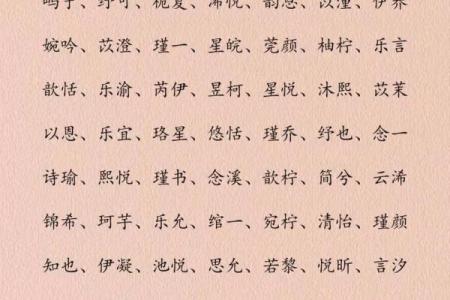 婉吟、苡澄、瑾一、星皖、莞颜、柚柠、乐言
歆恬、乐渝、芮伊、昱柯、星悦、沐熙、苡茉
以恩、乐宜、珞星、悠恬、瑾乔、纾也、念一
诗瑜、熙悦、瑾书、念溪、歆柠、简兮、云浠
锦希、珂芋、乐允、绾一、宛柠、清怡、瑾颜
知也、伊凝、池悦、思允、若黎、悦昕、言汐